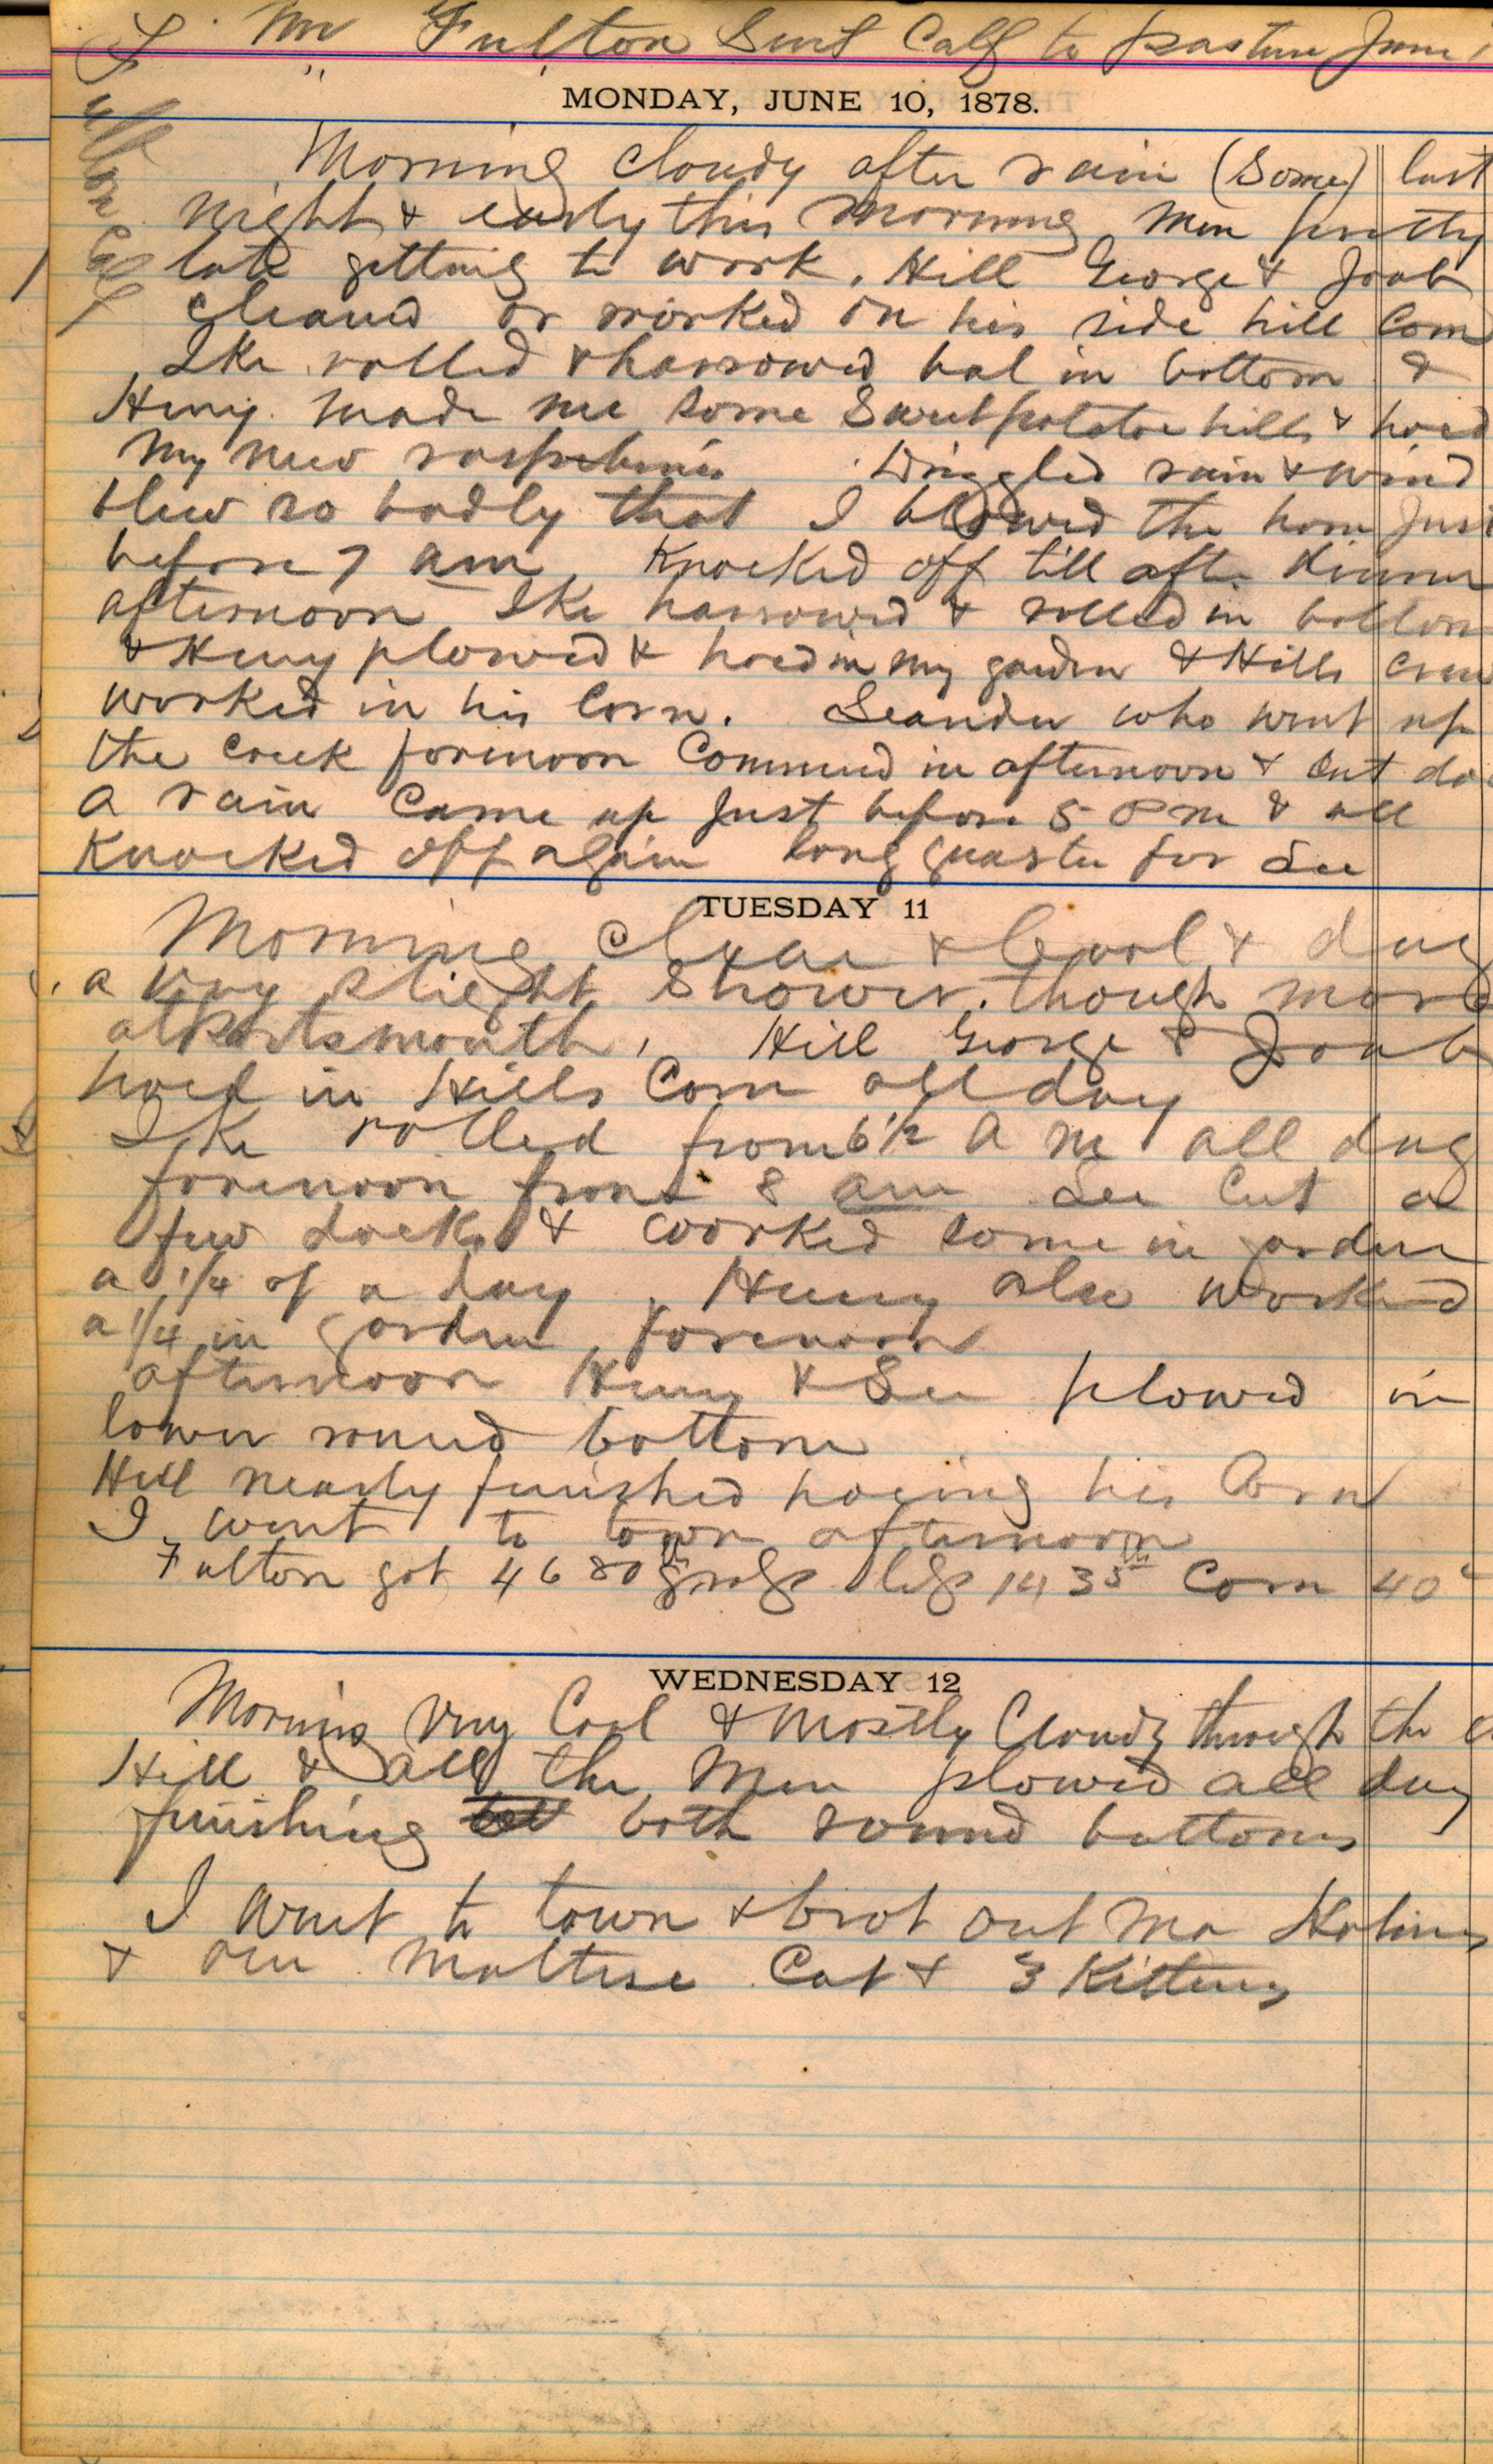 Mr Fulton Sent Calf to pasture June 1
Fulton Calf
MONDAY, JUNE 10, 1878.
Morning cloudy after rain (Some) last
night & early this morning Men pretty
late getting to work. Hill George & Joab
cleaned or worked in his side hill Corn
Ike rolled & harrowed bal in bottom &
Henry made me some Sweet potatoe hills & hoed
My new raspberries Drizzled rain & wind
blew so badly that I blowed the horn Just
before 7 am Knocked off till after dinner
afternoon Ike harrowed & rolled in bottom
& Henry plowed & hoed in my garden & Hills crew
worked in his Corn. Leander who went up
the creek forenoon Commenced in afternoon & Cut
a rain Came up Just before 5 P m & all
Knocked off again long quarter for Lee
TUESDAY 11
Morning Clear & Cool & day
a very slight Shower. though more
at Portsmouth. Hill George & Joab
hoed in Hills Corn all day
Ike rolled from 6 1/2 A m all day
forenoon from 8 am Lee Cut a
few docks & worked some in garden
a 1/4 of a day. Henry also worked
a 1/4 in garden forenoon
afternoon Henry & Lee plowed in
lower round bottom
Hill nearly finished hoeing his Corn
I went to town afternoon
Fulton got 4680 14 35 Corn 40c
WEDNESDAY 12
Morning very Cool & Mostly Cloudy through the
Hill & all the Men plowed all day
finishing both round bottoms
I went to town & brot out Ma
& our Maltese Cat & 3 Kittens